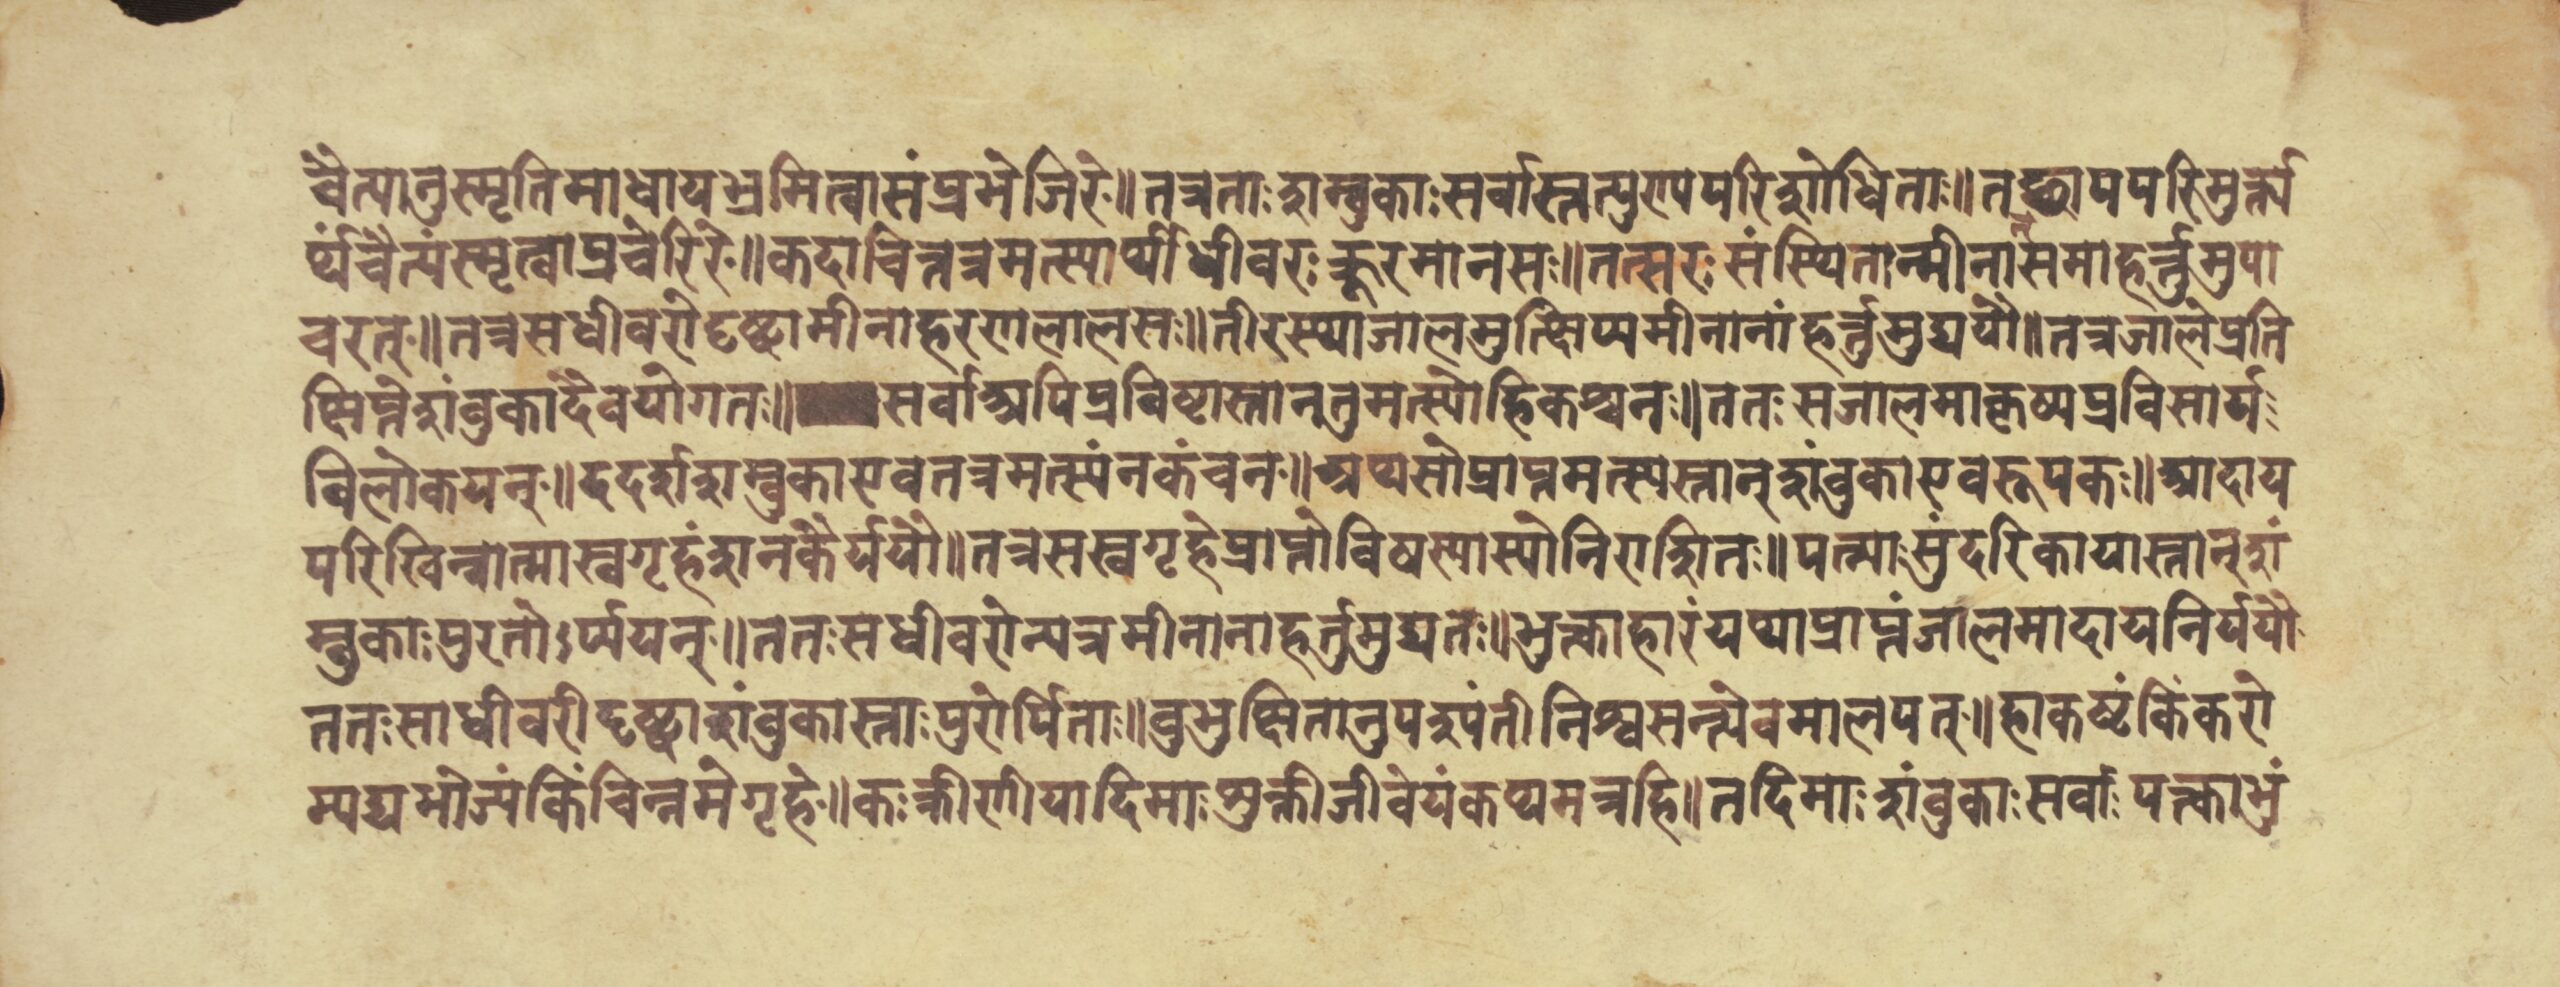 चैत्यानुस्मृतिमाधायभ्रमित्वासंप्रभेजिरे॥तत्रताःशम्बुकाःसर्वास्तत्पुण्यपरिशोधिताः॥तच्छापपरिमुक्त्य
र्थ्यंचैत्यंस्मृत्वाप्रचेरिरे॥कदाचित्तत्रमत्स्यार्थीधीवरःक्रूरमानसः॥तत्सरःसंस्थितान्मीनान्समाहर्त्तुमुपा
चरत्॥तत्रसधीवरोदृष्ट्वामीनाहरणलालसः॥तीरस्थाजालमुत्क्षिप्यमीनानांहर्त्तुमुद्ययौ॥तत्रजालेप्रति
क्षिप्तेशंवुकादैवयोगतः॥सर्वाअपिप्रविष्टास्तानतुमत्स्योहिकश्चनः॥ततःसजालमाकृष्यप्रविसार्य
विलोकयन्॥ददर्शशम्बुकाएवतत्रमत्स्यंनकंचन॥अथासौप्राप्तमत्स्यस्तान्शंवुकाएवरूपकः॥आदाय
परिखिन्नात्मास्वगृहंशनकैर्ययौ॥तत्रसस्वगृहेप्राप्तोविषस्यास्योनिराशितः॥पत्न्याःसुंदरिकायास्तान्शं
म्बुकाःपुरतोऽर्प्पयन्॥ततःसधीवरोन्यत्रमीनानाहर्तुमुद्यतः॥भुक्त्वाहारंयथाप्राप्तंजालमादायनिर्ययौ
ततःसाधीवरीदृष्ट्वाशंवुकास्ताःपुरोर्पिताः॥वुभुक्षितानुपदृपंतीनिश्वसन्त्येवमालपत्॥हाकष्टंकिंकरो
म्यद्यभोज्यंकिंचिन्नमेगृहे॥कःक्रीणीयादिमाःशुक्तीजीवेयंकथमत्रहि॥तदिमाःशंवुकाःसर्वाःपक्त्वाभुं